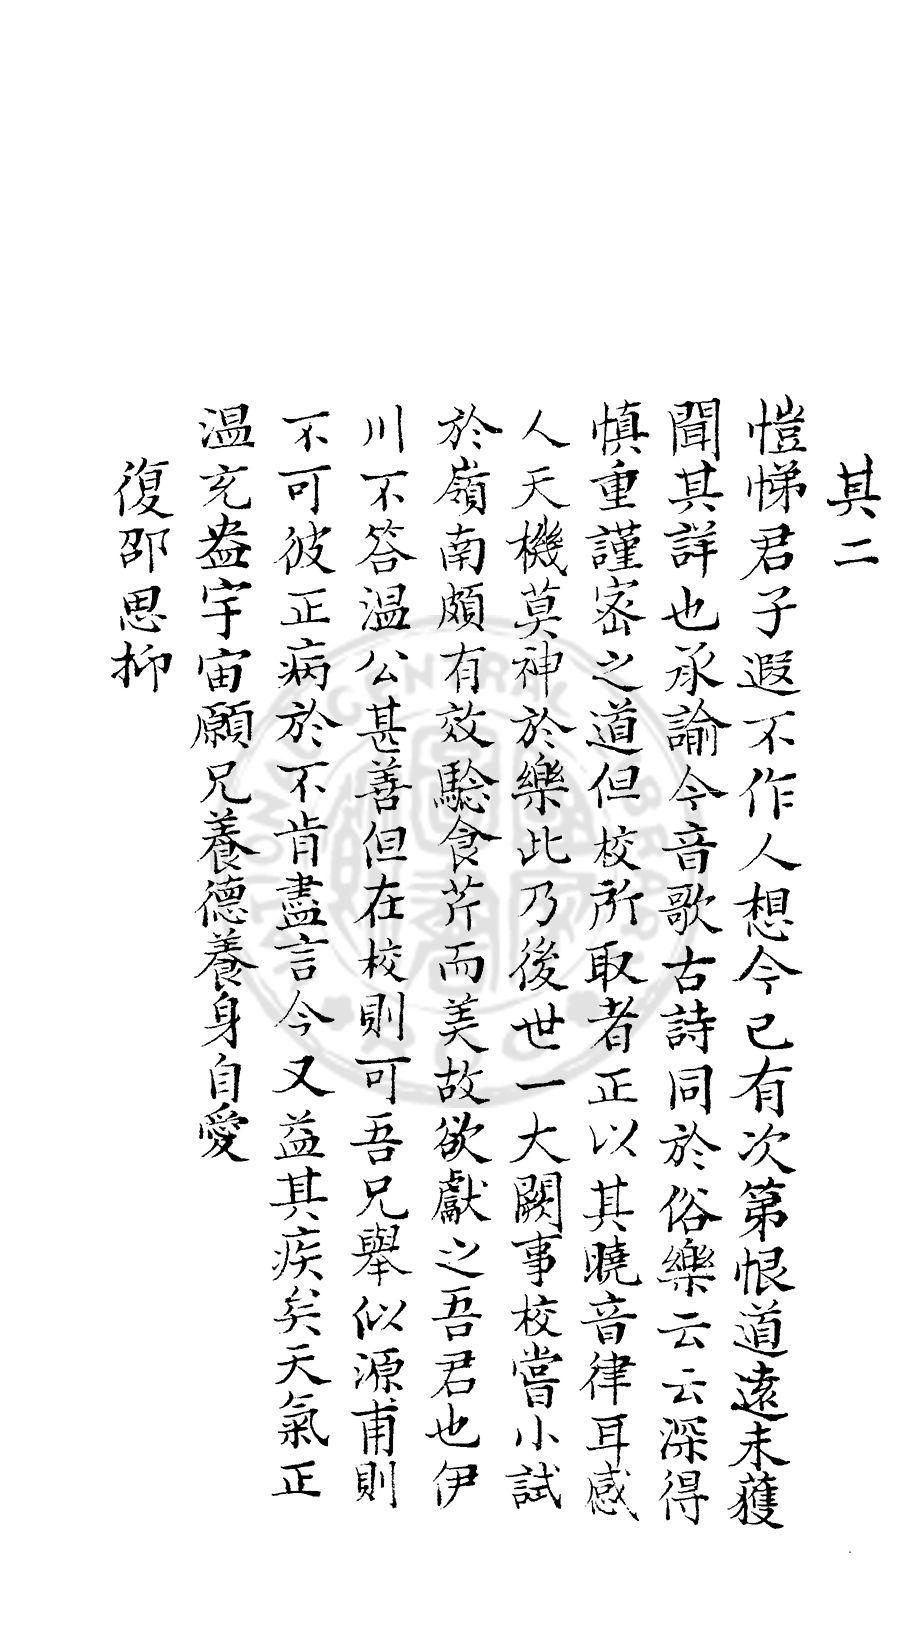 其二
愷悌君子遐不作人想今已有次第恨道遠未獲
聞其詳也承諭今音歌古詩同於俗樂云云深得
慎重謹宻之道但校所取者正以其曉音律耳感
人天機莫神於樂此乃後世一大闕事校嘗小試
於嶺南頗有效騐食芹而美故欲獻之吾君也伊
川不答温公甚善但在校則可吾兄舉似源甫則
不可彼正病於不肯盡言今又益其疾矣天氣正
温充盎宇宙願兄養德養身自愛
復邵思抑